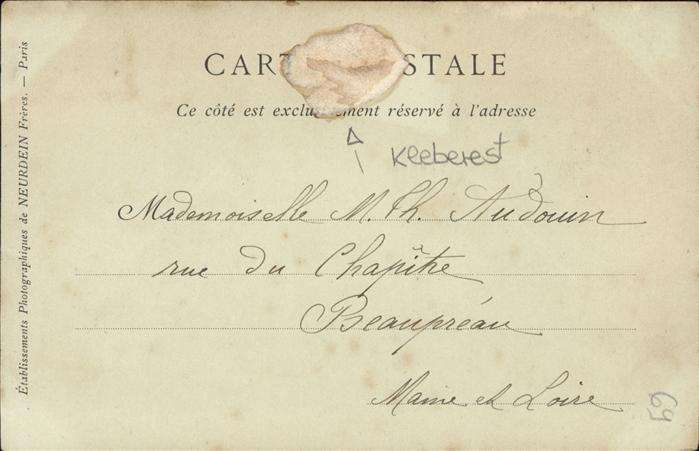 CART STALE
Ce côté est exclusivement réservé à l'adresse
Kleberest
Mademoiselle M. Th. Audouin
rue du Chapître
Beaupréau
Maine et Loire
69
Établissements Photographiques de NEURDEIN Frères. — Paris